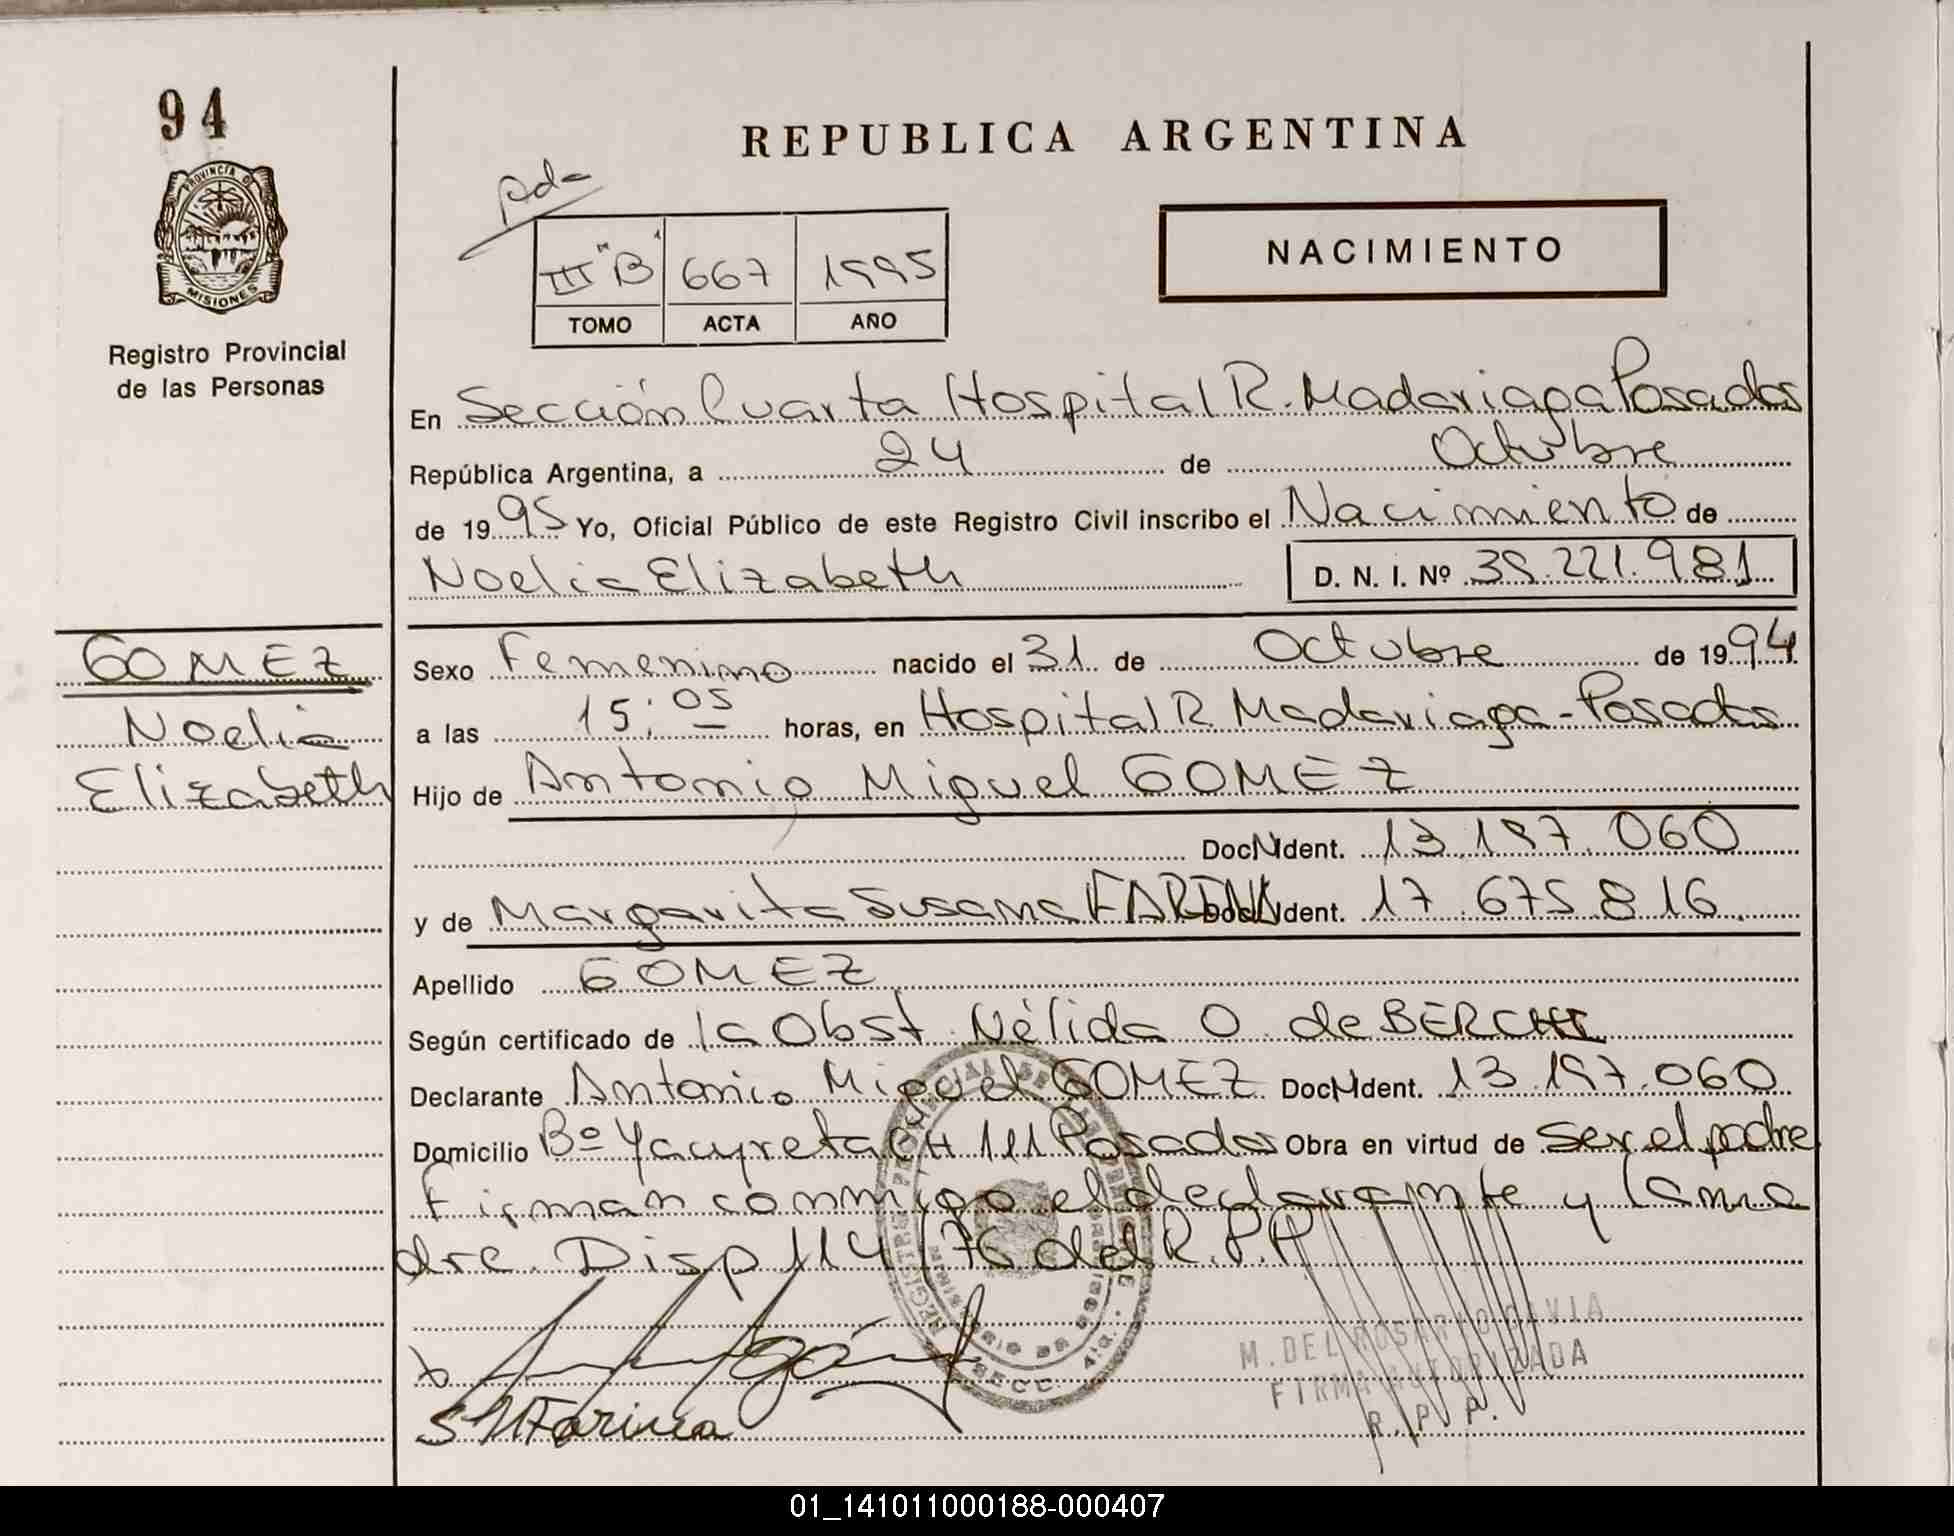 94
PROVINCIA DE
MISIONES
Registro Provincial
de las Personas
REPUBLICA ARGENTINA
NACIMIENTO
III "B" 667 1995
TOMO ACTA AÑO
En Sección Cuarta Hospital R. Madariaga Posadas
República Argentina, a 24 de Octubre
de 1995 Yo, Oficial Público de este Registro Civil inscribo el Nacimiento de
Noelia Elizabeth D. N. I. Nº 39.221.981
GOMEZ
Noelia
Elizabeth
Sexo Femenino nacido el 31 de Octubre de 1994
a las 15:05 horas, en Hospital R. Madariaga - Posadas
Hijo de Antonio Miguel GOMEZ
Doc. Ident. 13.197.060
y de Margarita Susana FARINA Doc. Ident. 17.675.816
Apellido GOMEZ
Según certificado de la Obst. Nélida O. de
Declarante Antonio Miguel GOMEZ Doc. Ident. 13.197.060
Domicilio Bº Yacyreta CH 111 Posadas Obra en virtud de ser el padre
Firman conmigo el declarante y la ma
dre. Disp 114/76 del R.P.P.
S M Farinea
M. DEL ROSARIO GAVIA
FIRMA AUTORIZADA
R. P. P.
01_141011000188-000407